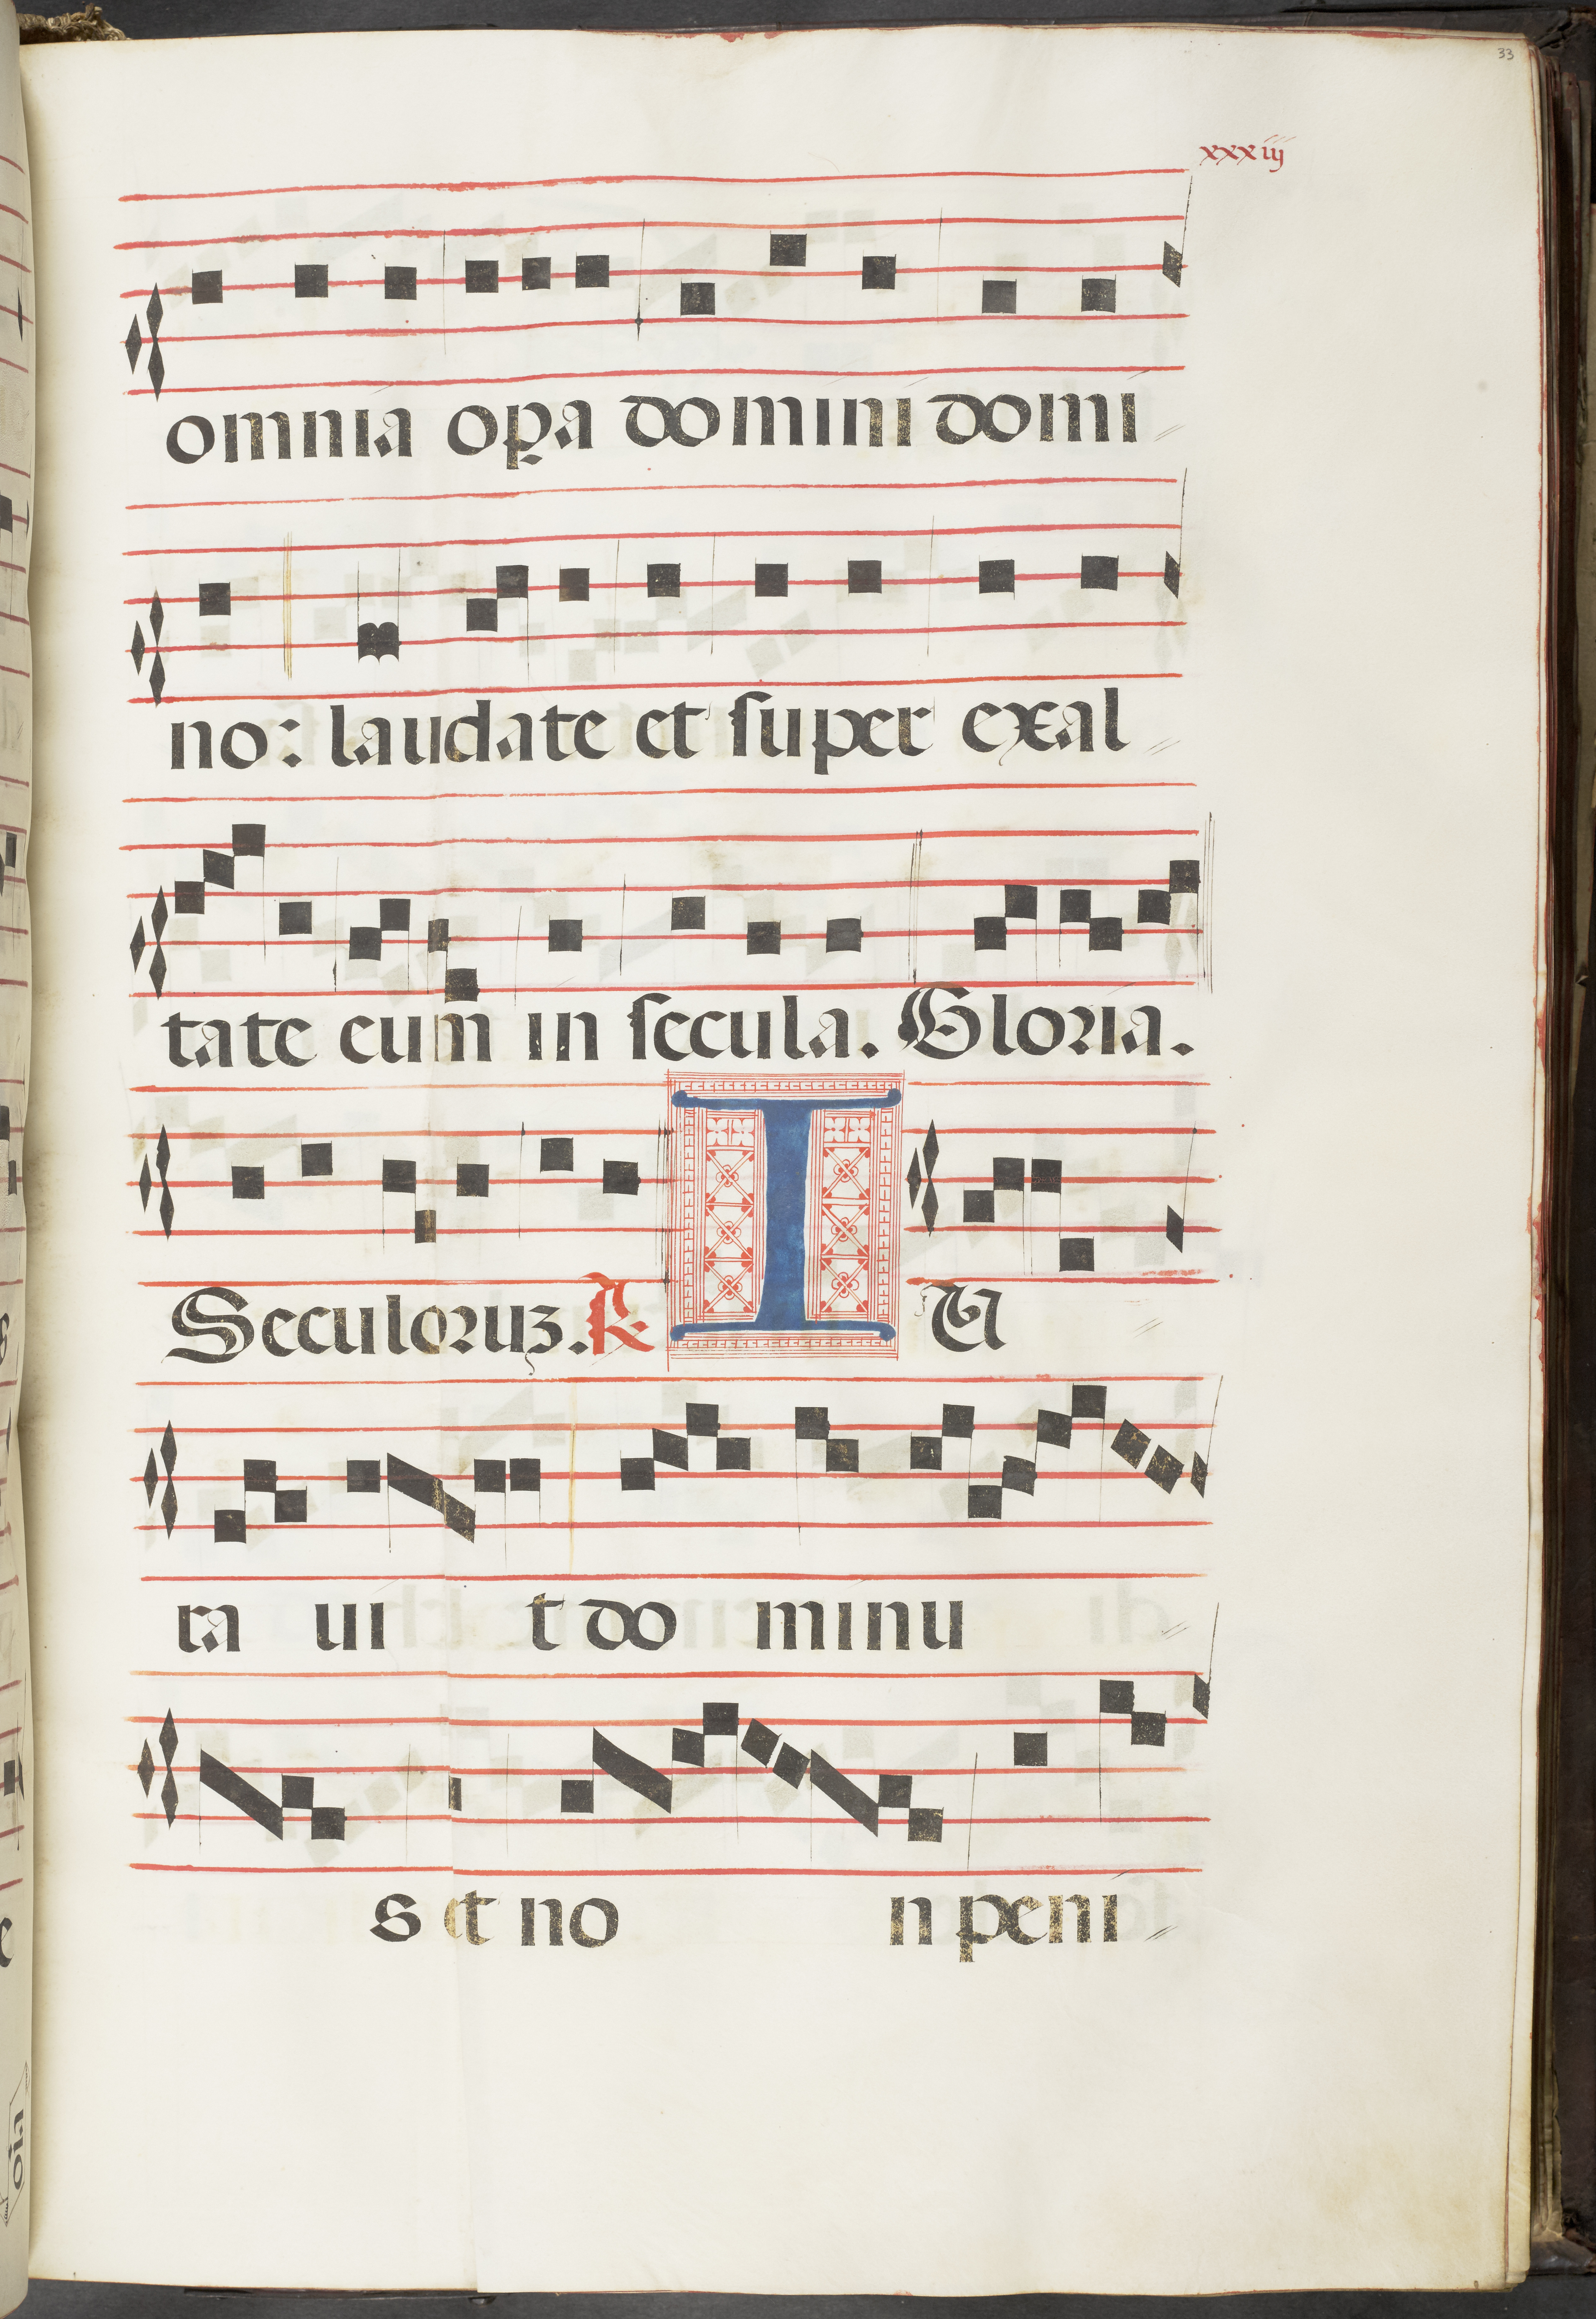 33
xxxiij
omnia oꝑa domini domi
no: laudate et ſuper exal
tate eum in ſecula. Gloria.
Seculoruz. R. I U
ra ui t do minu
s et no n peni